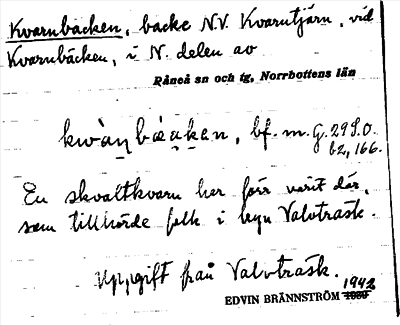 Kvarnbacken, backe N.V. Kvarntjärn, vid
Kvarnbäcken, i N. delen av
Råneå sn och tg, Norrbottens län
kwàṇbȧḁken, bf. m. G. 29 S.O.
b2, 166.
En skvaltkvarn har förr varit där,
som tillhörde folk i byn Valvträsk.
Uppgift från Valvträsk.
1942
EDVIN BRÄNNSTRÖM 1930